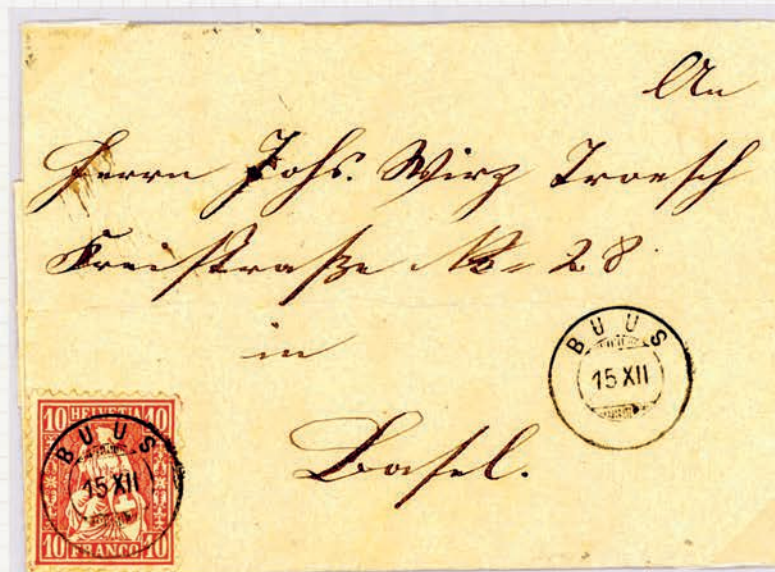 An
Herrn Johs. Wirz Troesch
Freistraße No= 28
in
Basel.
BUUS
15 XII
10 HELVETIA 10
BUUS
15 XII
10 FRANCO 10